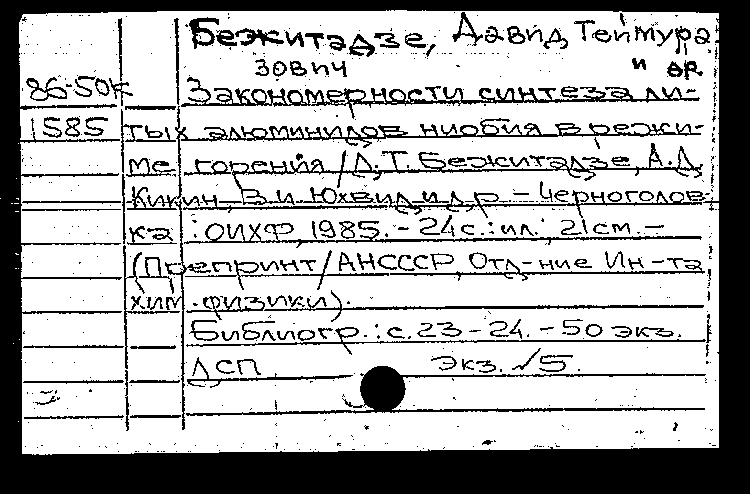 Бежитадзе, Давид Теймура
зович и др
86-50к Закономерности синтеза ли-
1585 тых алюминидов ниобия в режи-
ме горения / Д. Т. Бежитадзе, А. Д.
Кикин, В. И. Юхвид и др - Черноголов
ка : ОИХФ, 1985. - 24 с. : ил.; 21 см. -
(Препринт / АН СССР, Отд-ние Ин-та
хим. физики).
Библиогр.: с. 23-24. - 50 экз.
ДСП экз. √5.